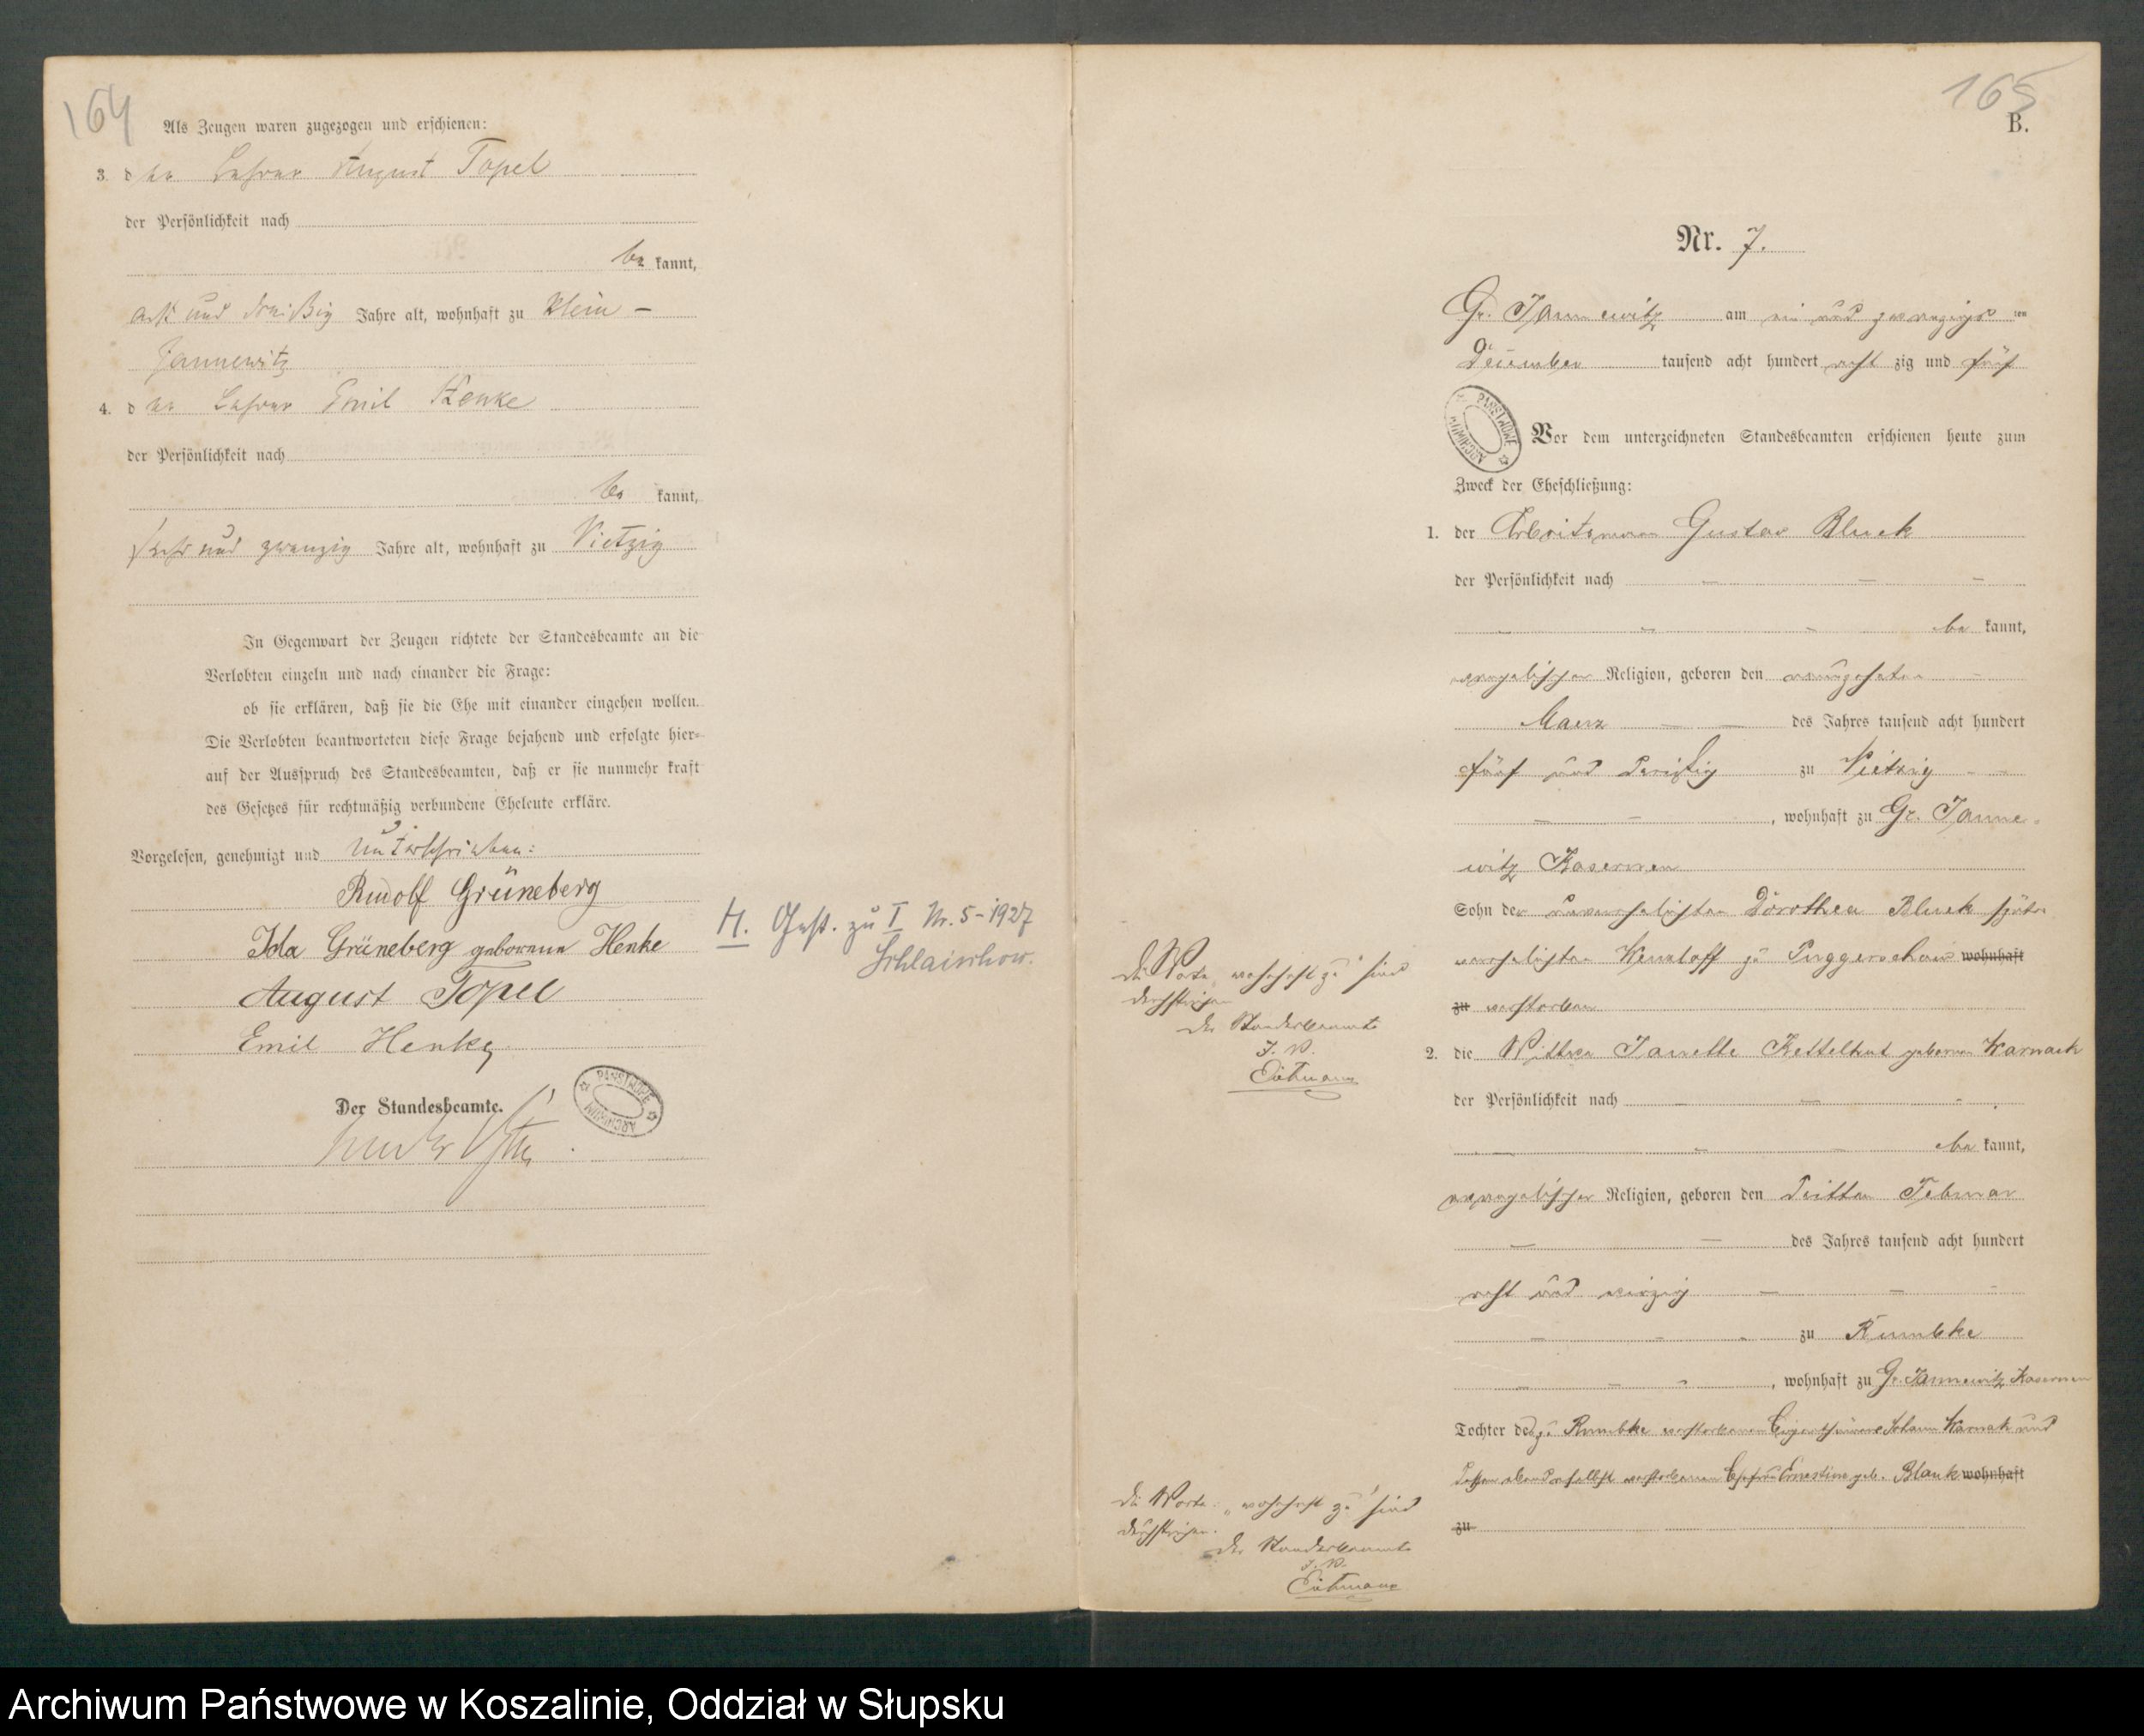 164
Als Zeugen waren zugezogen und erschienen:
3. der Lehrer August Topel
der Persönlichkeit nach
be kannt,
acht und dreißig Jahre alt, wohnhaft zu Klein-
Jannewitz
4. der Lehrer Emil Henke
der Persönlichkeit nach
be kannt,
sechs und zwanzig Jahre alt, wohnhaft zu Vietzig
In Gegenwart der Zeugen richtete der Standesbeamte an die
Verlobten einzeln und nach einander die Frage:
ob sie erklären, daß sie die Ehe mit einander eingehen wollen.
Die Verlobten beantworteten diese Frage bejahend und erfolgte hier-
auf der Ausspruch des Standesbeamten, daß er sie nunmehr kraft
des Gesetzes für rechtmäßig verbundene Eheleute erkläre.
Vorgelesen, genehmigt und unterschrieben:
Rudolf Grüneberg
Ida Grüneberg geborene Henke
August Topel
Emil Henke
Der Standesbeamte.
PAŃSTWOWE ARCHIWUM
H. Gest. zu I Nr. 5-1927
Schlaischow.
165
B.
Nr. 7.
Gr. Jannewitz am ein und zwanzigs ten
December tausend acht hundert acht zig und fünf
PAŃSTWOWE ARCHIWUM
Vor dem unterzeichneten Standesbeamten erschienen heute zum
Zweck der Eheschließung:
1. der Arbeitsmann Gustav Bluek
der Persönlichkeit nach
be kannt,
evangelischer Religion, geboren den neunzehnten
Maerz des Jahres tausend acht hundert
fünf und dreißig zu Vietzig
, wohnhaft zu Gr. Janne-
witz Kasernen
Sohn der unverehelichten Dorothea Bluek später
verehelichten zu Puggerschow wohnhaft
zu verstorben
Die Worte „wohnhaft zu" sind
durchstrichen
Der Standesbeamte
J. V.
2. die Wittwe Janette Kettelhut geborene Warnack
der Persönlichkeit nach
be kannt,
evangelischer Religion, geboren den dritten Februar
des Jahres tausend acht hundert
acht und vierzig
zu Rumbke
, wohnhaft zu Gr. Jannewitz Kasernen
Tochter des zu Rumbke verstorbenen Eigenthümers Johann Warnack und
dessen ebendaselbst verstorbenen Ehefrau Ernestine geb. Blank wohnhaft
zu
Die Worte: „wohnhaft zu" sind
durchstrichen.
Der Standesbeamte
J. V.
Archiwum Państwowe w Koszalinie, Oddział w Słupsku